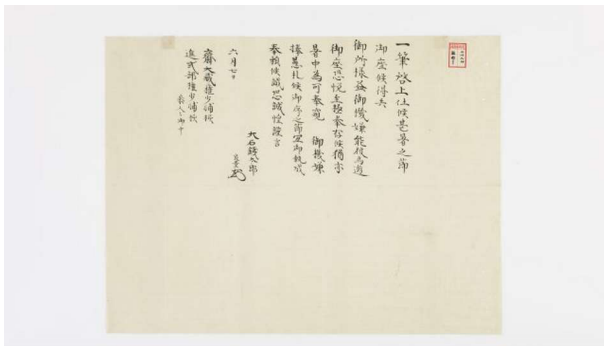 一筆啓上仕候甚暑之節
御座候得共
御所様益御機嫌能被為遊
御座恐悦至極奉存候猶亦
暑中為可奉窺 御機嫌
捧愚札候御序之節宜御執成
奉頼候誠恐誠惶謹言
六月七日
大石
齋大蔵権少輔様
進式部権少輔様